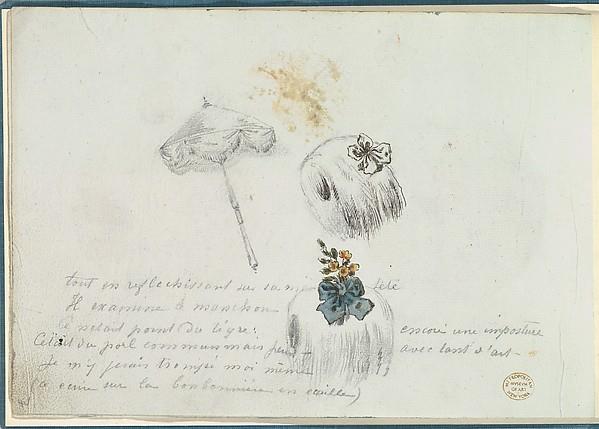 tout en reflechissant sur sa
Il examine le manchon
Ce n'etait point du tigre: encore une imposture
C'était du poil commun mais avec tant d'art
Je m'y serais trompé moi même
(a ecrire sur la bonbonnière en écaille)
METROPOLITAN MUSEUM OF ART NEW YORK